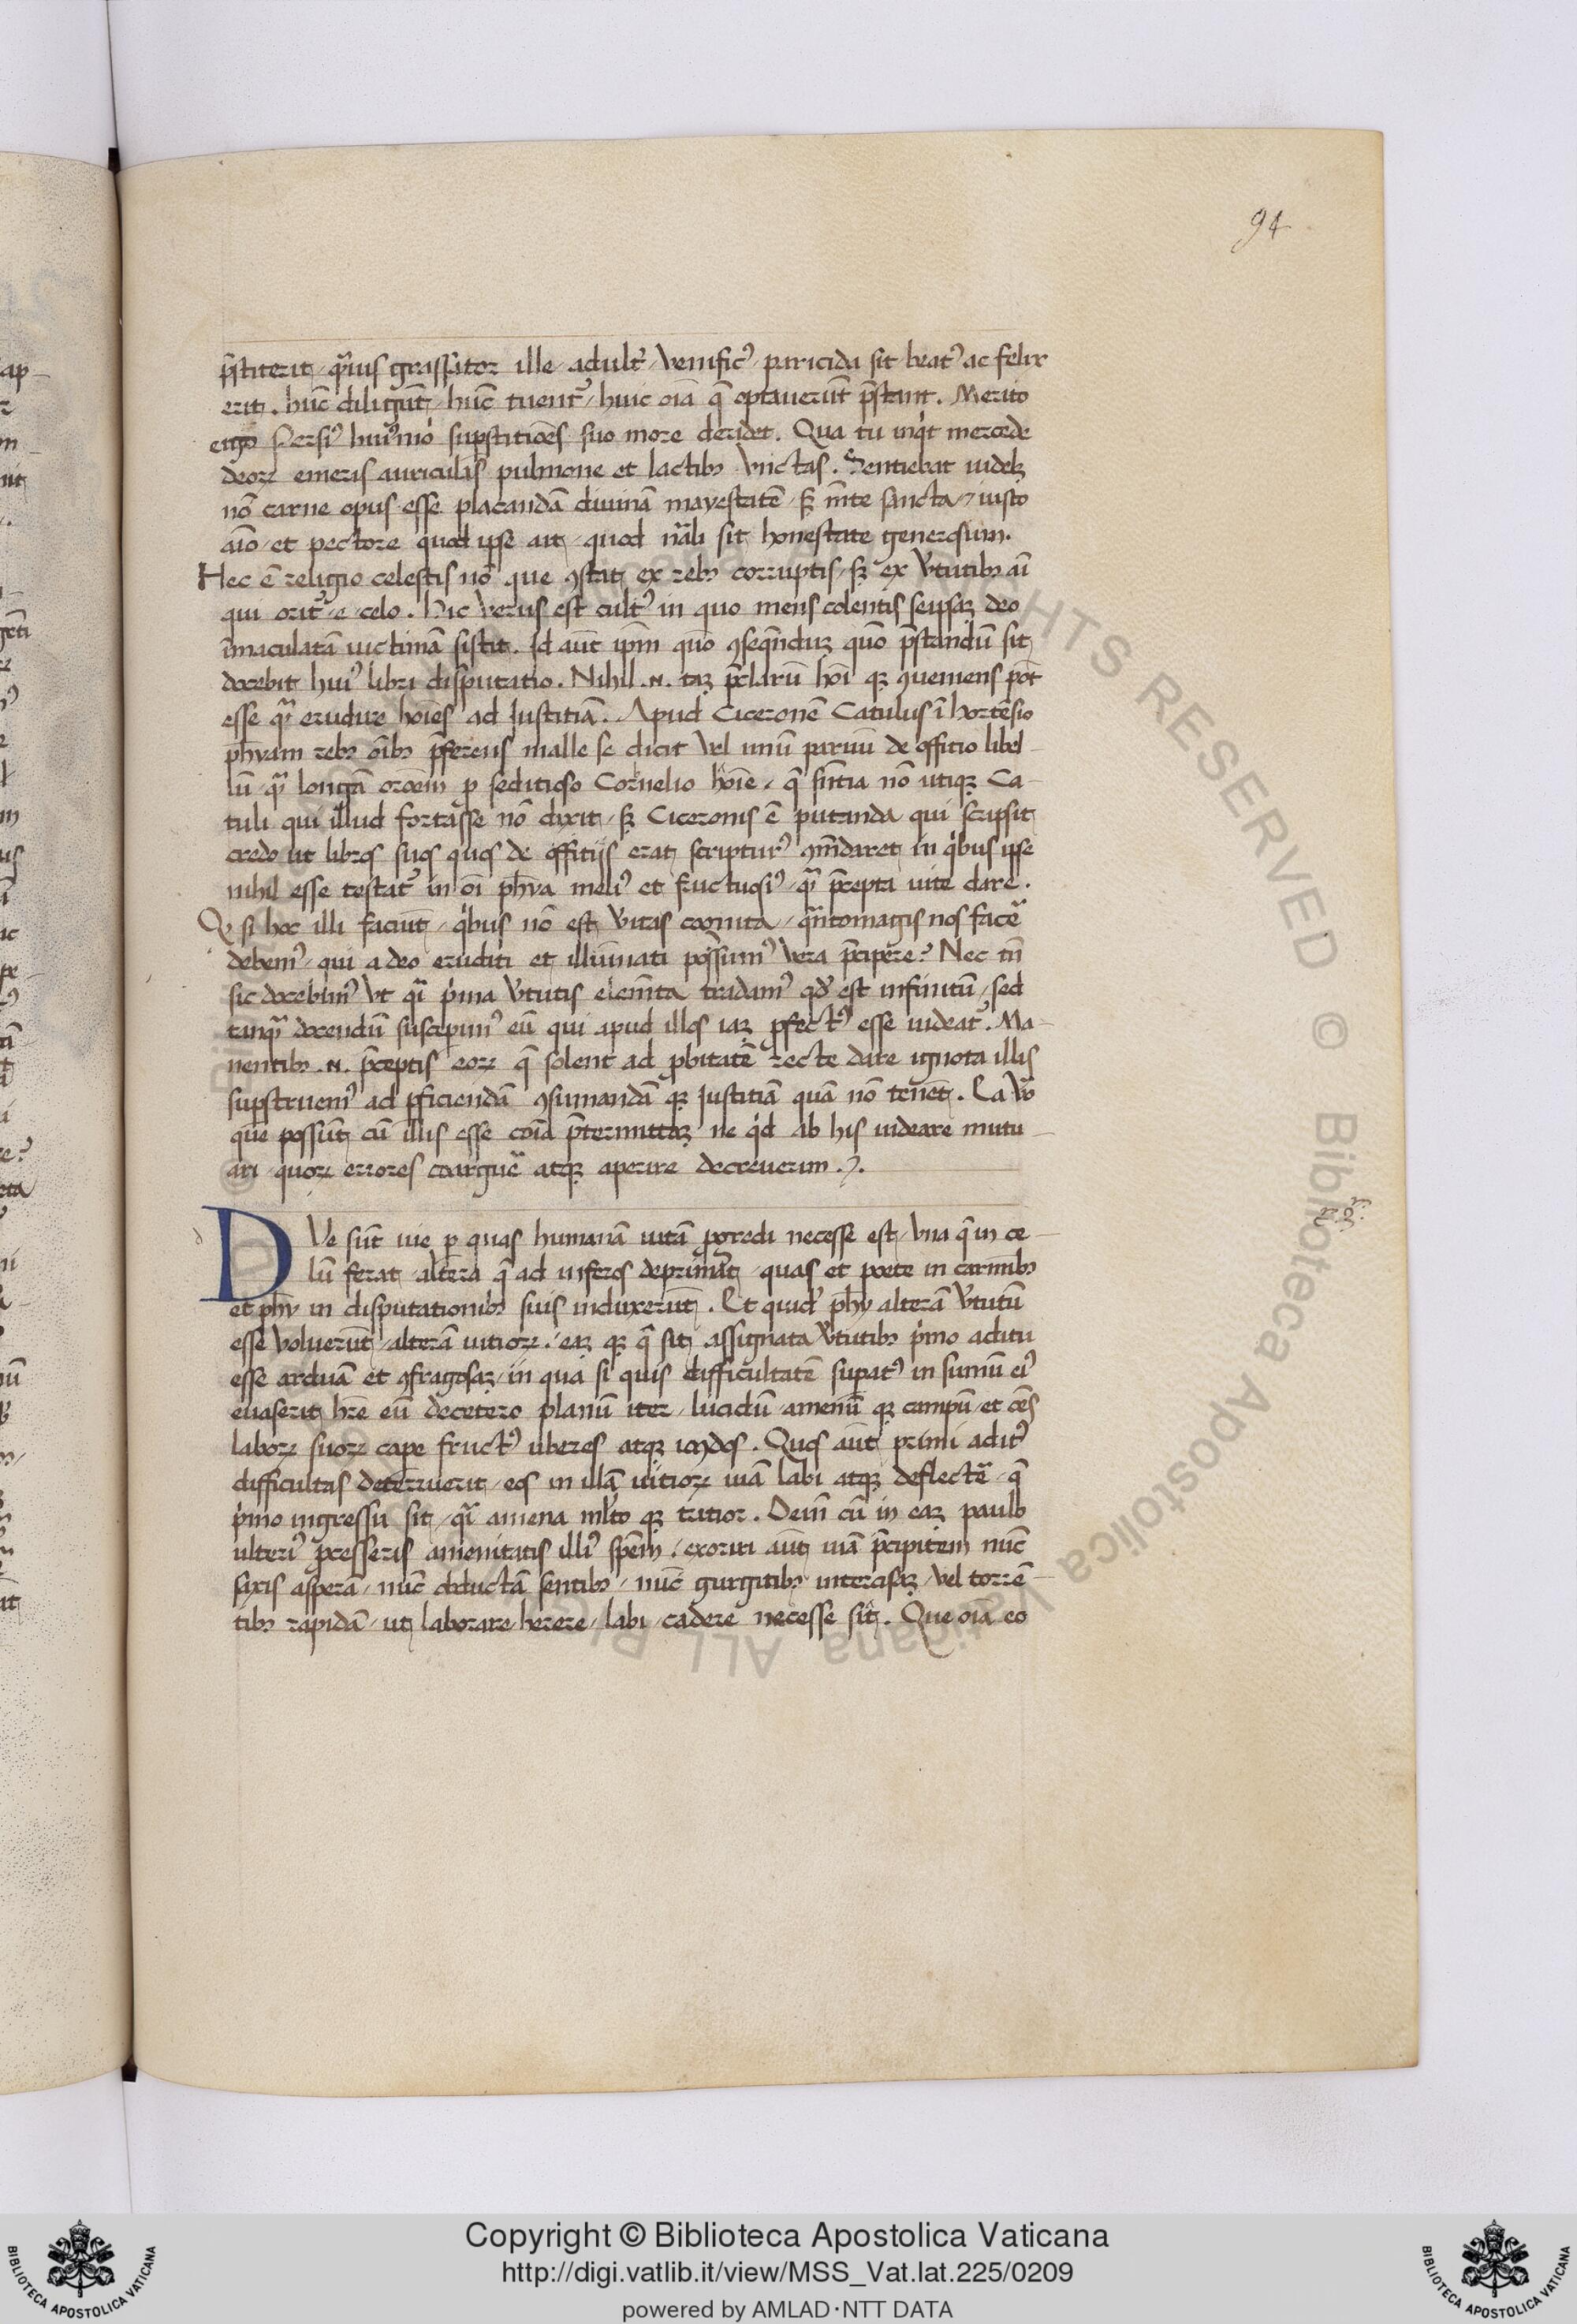 94
p̄stiterit / qͣuis grassator ille / adult̉ / venificꝰ / paricida sit beatꝰ ac felix
erit . hūc diligūt / hūc tuentᷣ / huic oīa q̄ optauerūt p̄stant . Merito
ergo Persiꝰ huiꝰmōi supstitiōes suo more deridet . Qua tu inqͥt mercede
deoꝝ emeris auriculas pulmone et lactibꝫ vnctas . Sentiebat uidelꝫ
nō carne opus esse placandā diuinā mayestatē / sꝫ mēte sancta / ⁊ iusto
aīo / et pectore quod ipse ait / quod nāli sit honestate generosum .
Hec ē religio celestis nō que ꝯstat ex rebꝫ corruptis / sꝫ ex v̉tutibꝫ aī
qui oritᷣ e celo . Hic verus est cultꝰ in quo mens colentis seipsaꝫ deo
īmaculatā uictimā sistit . Id aūt ip̄m quō ꝯseq̄nduꝫ quō p̄standū sit
docebit huiꝰ libri disputatio . Nihil .n. taꝫ p̄clarū hōi qꝫ ꝯueniens pōt
esse qͣ erudire hōies ad Iustitiā . Apud Ciceronē Catulus ī hortēsio
ph̄yam rebꝫ oībꝫ p̄ferens malle se dicit vel unū paruū de offitio libel-
lū qͣ longā orōem ꝓ seditioso Cornelio hōie / q̄ sn̄tia nō utiqꝫ Ca-
tuli qui illud fortasse nō dixit / sꝫ Ciceronis ē putanda qui scripsit
credo ut libros suos quos de offitijs erat scripturꝰ ꝯm̄daret in qͥbus ipse
nihil esse testatᷣ in oī ph̄ya meliꝰ et fructuosiꝰ qͣ p̄cepta uite dare .
Qͩ si hoc illi faciūt / qͥbus nō est v̉itas cognita / qͣntomagis nos facē
debemꝰ / qui a deo eruditi et illuminati possumꝰ vera p̄cipere ? Nec tn̄
sic docebimꝰ vt qͣi pͥma v̉tutis elemēta tradamꝰ qd̉ est infinitū / sed
tanqͣ docendū suscepimꝰ eū qui apud illos iaꝫ ꝑfectꝰ esse uideatᷣ . Ma-
nentibꝫ .n. p̄ceptis eoꝝ q̄ solent ad ꝓbitatē recte dare ignota illis
supstruemꝰ ad ꝑficiendā ꝯsumandā qꝫ Iustitiā quā nō tenēt . Ea v̊
que possūt cū illis esse cōia p̄termittaꝫ ne qͥd ab his uideare mutu-
ari quoꝝ errores coarguē atqꝫ aperire decreuerim .
DVe sūt uie ꝑ quas humanā uitā ꝓgredi necesse est / vna q̄ in ce-
lū ferat / altera q̄ ad inferos deprimat / quas et poete in carmībꝫ
et ph̄y in disputationibꝫ suis induxerūt . Et quidē ph̄y alterā v̉tutū
esse voluerūt / alterā uitioꝝ / eaꝫ qꝫ q̄ sit assignata v̉tutibꝫ pͥmo aditu
esse arduā et ꝯfragosaꝫ / in qua si quis difficultatē supatꝰ in sumū eiꝰ
euaserit hr̄e eū decetero planū iter / lucidū amenū qꝫ campū / et oēs
laboꝝ suoꝝ cape fructꝰ uberes atqꝫ iocūdos . Quos aūt primi aditꝰ
difficultas deterruerit / eos in illā uitioꝝ uiā labi atqꝫ deflectē / q̄
pͥmo ingressu sit / qͣi amena ml̄to qꝫ tritior . Dein̄ cū in eaꝫ paulo
ulteriꝰ ꝓcesseris amenitatis illiꝰ spēm / exoriri aūt uiā p̄cipitem nūc
saxis asperā / nūc obductā sentibꝫ / nūc gurgitibꝫ intercisaꝫ / vel torrē-
tibꝫ rapidā / ut laborare / herere / labi / cadere necesse sit . Que oīa eo
Copyright © Biblioteca Apostolica Vaticana
http://digi.vatlib.it/view/MSS_Vat.lat.225/0209
powered by AMLAD·NTT DATA
BIBLIOTECA APOSTOLICA VATICANA
BIBLIOTECA APOSTOLICA VATICANA